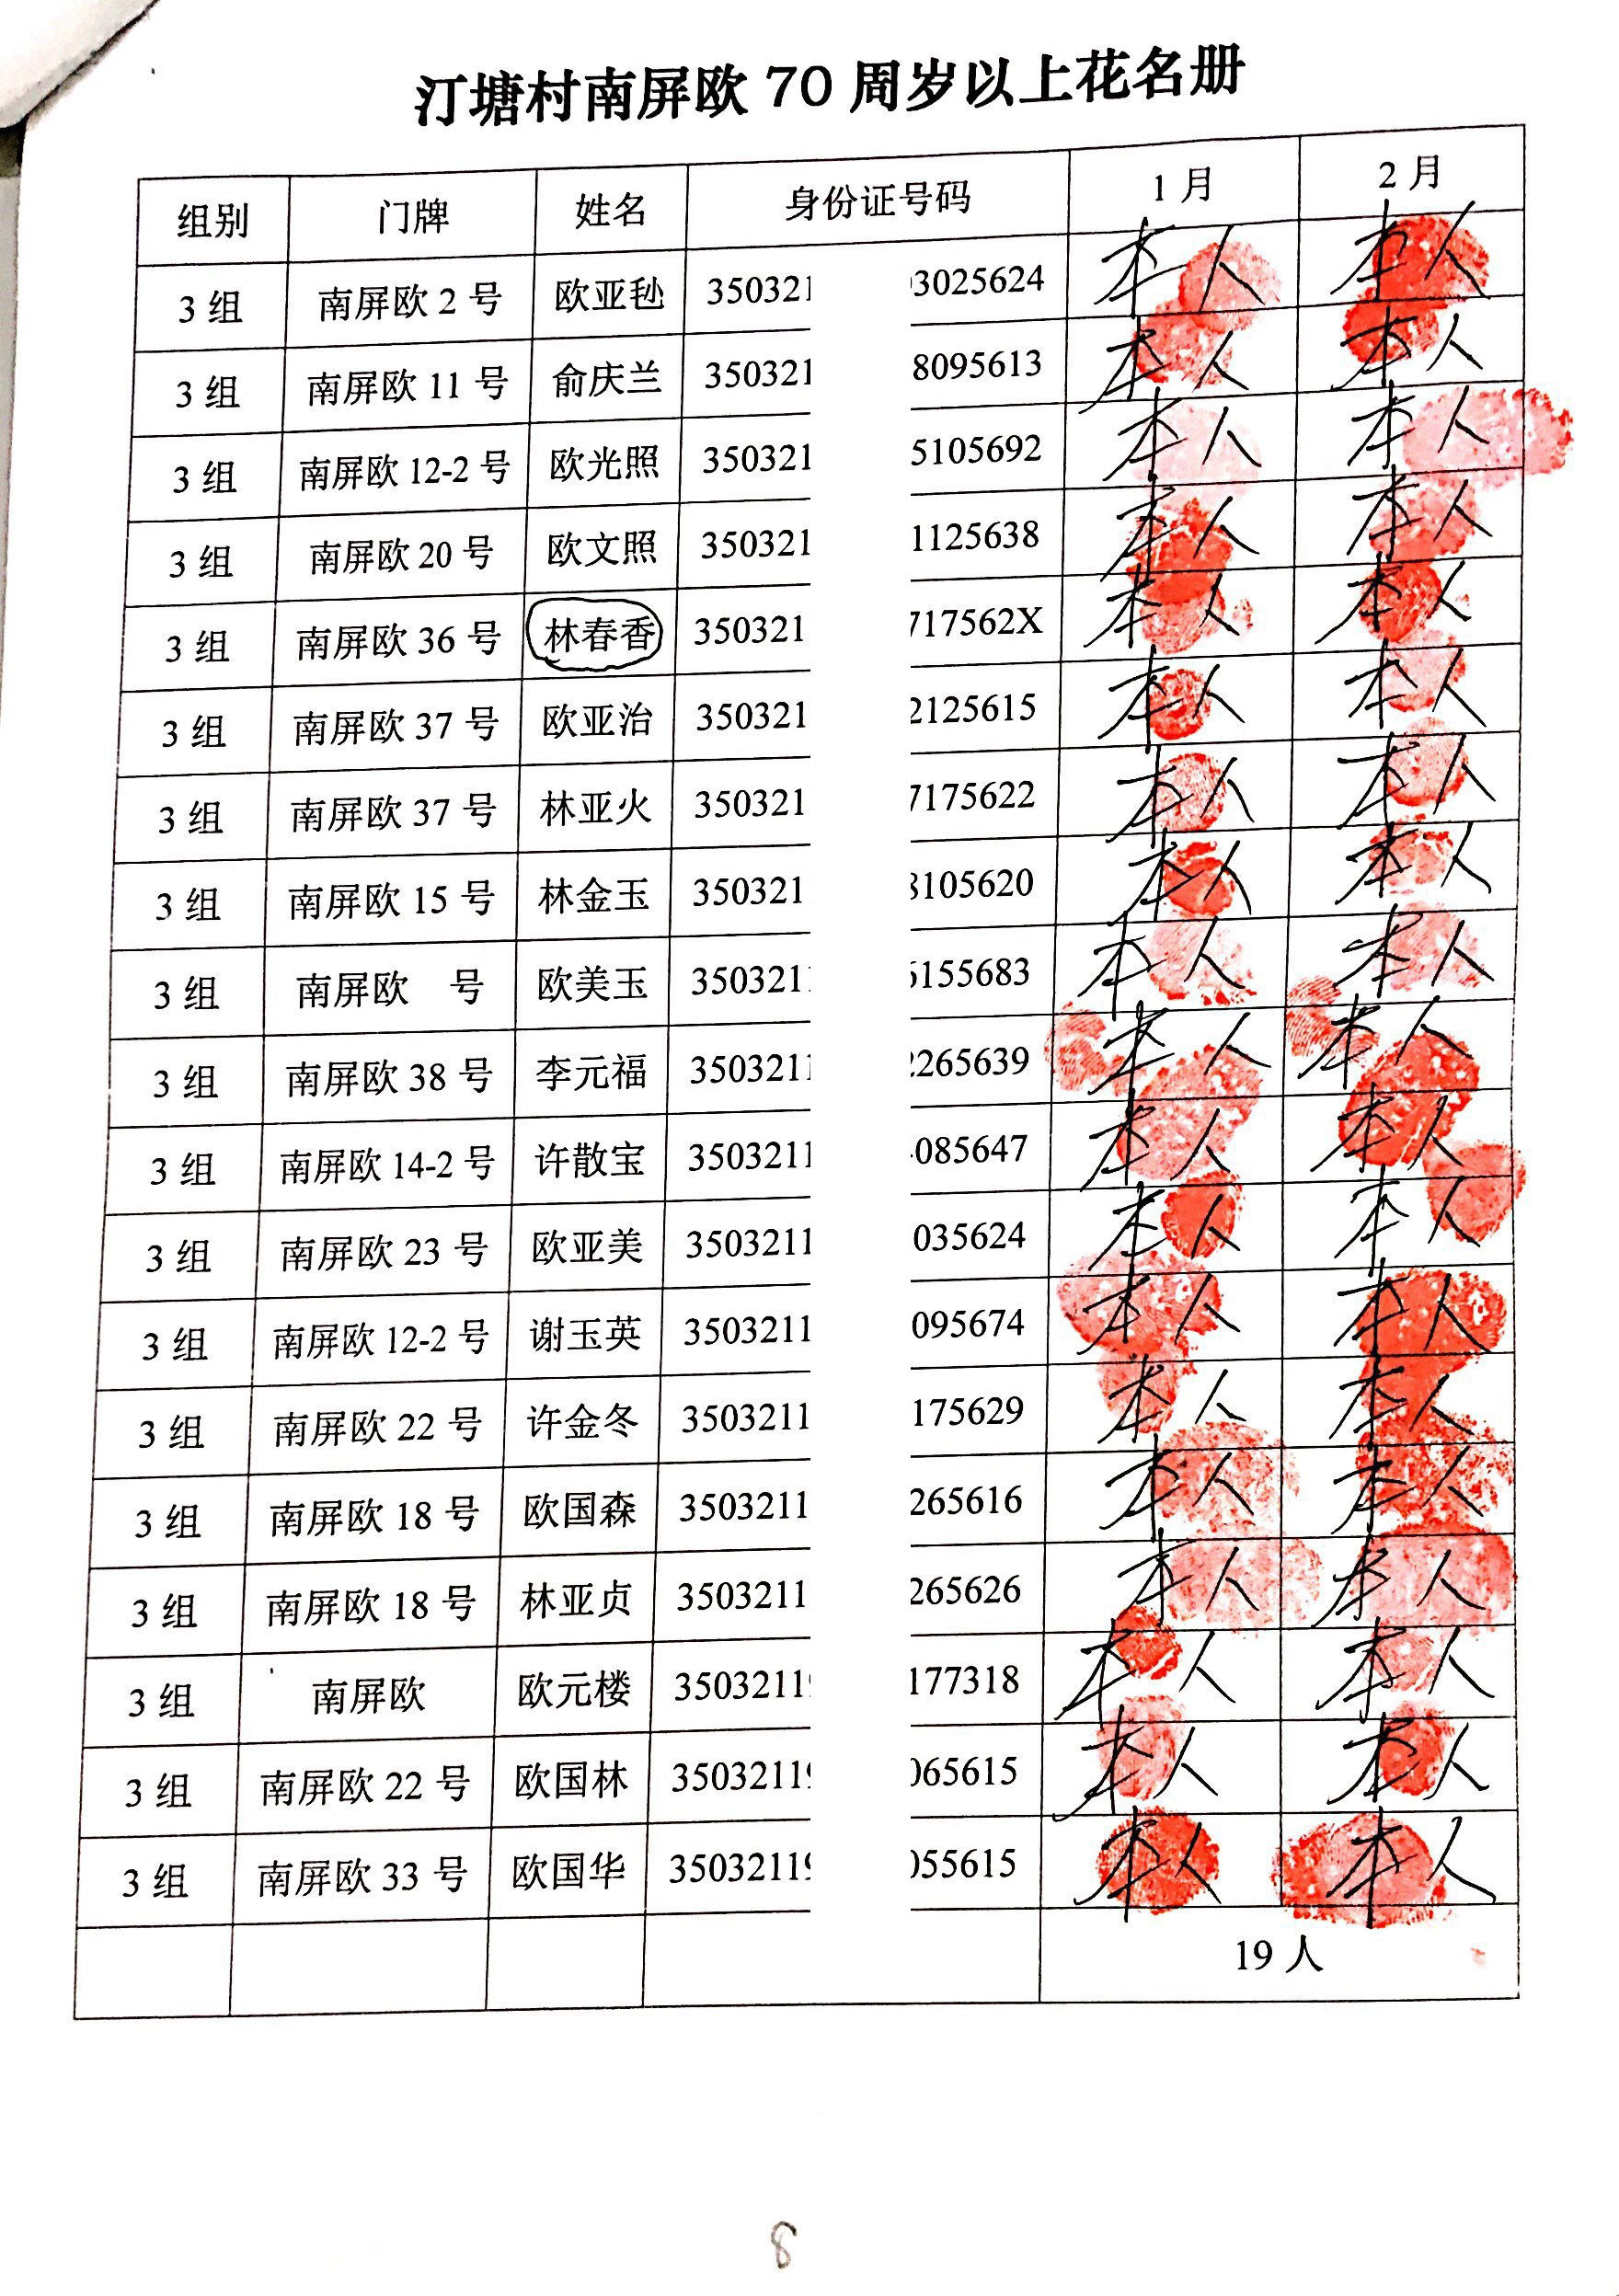 汀塘村南屏欧 70 周岁以上花名册
组别 门牌 姓名 身份证号码 1 月 2 月
3 组 南屏欧 2 号 欧亚 350321 3025624 本人 本人
3 组 南屏欧 11 号 俞庆兰 350321 8095613 本人 本人
3 组 南屏欧 12-2 号 欧光照 350321 5105692 本人 本人
3 组 南屏欧 20 号 欧文照 350321 1125638 本人 本人
3 组 南屏欧 36 号 林春香 350321 717562X 本人 本人
3 组 南屏欧 37 号 欧亚治 350321 2125615 本人 本人
3 组 南屏欧 37 号 林亚火 350321 7175622 本人 本人
3 组 南屏欧 15 号 林金玉 350321 8105620 本人 本人
3 组 南屏欧 号 欧美玉 350321 155683 本人 本人
3 组 南屏欧 38 号 李元福 3503211 2265639 本人 本人
3 组 南屏欧 14-2 号 许散宝 3503211 085647 本人 本人
3 组 南屏欧 23 号 欧亚美 3503211 035624 本人 本人
3 组 南屏欧 12-2 号 谢玉英 3503211 095674 本人 本人
3 组 南屏欧 22 号 许金冬 3503211 175629 本人 本人
3 组 南屏欧 18 号 欧国森 3503211 265616 本人 本人
3 组 南屏欧 18 号 林亚贞 3503211 265626 本人 本人
3 组 南屏欧 欧元楼 3503211 177318 本人 本人
3 组 南屏欧 22 号 欧国林 35032119 065615 本人 本人
3 组 南屏欧 33 号 欧国华 35032119 055615 本人 本人
19 人
8